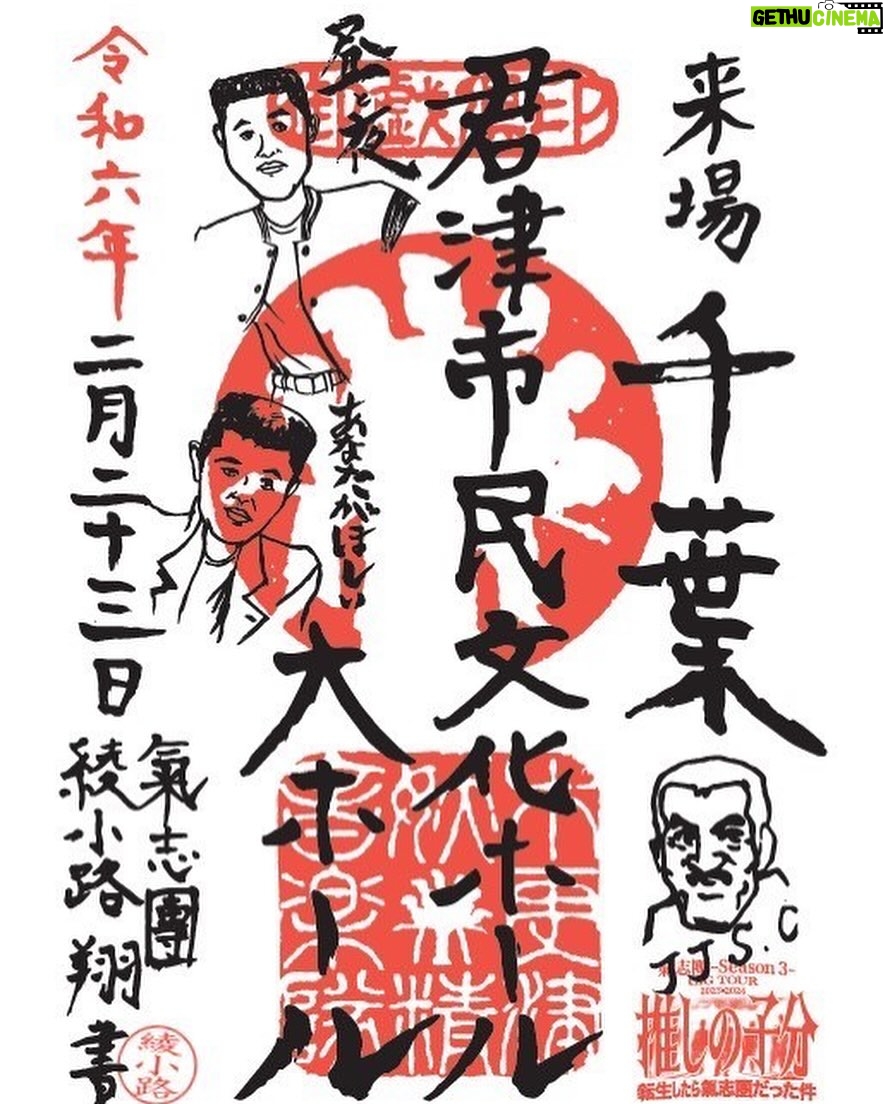 GETHUCINEMA
来場 千葉
君津市民文化ホール
大ホール
昼と夜
あなたがほしい
令和六年二月二十三日
氣志團
綾小路 翔 書
綾小路
JJS.C
氣志團~Season 3~
GIG TOUR
2023-2024
推しの子分
転生したら氣志團だった件